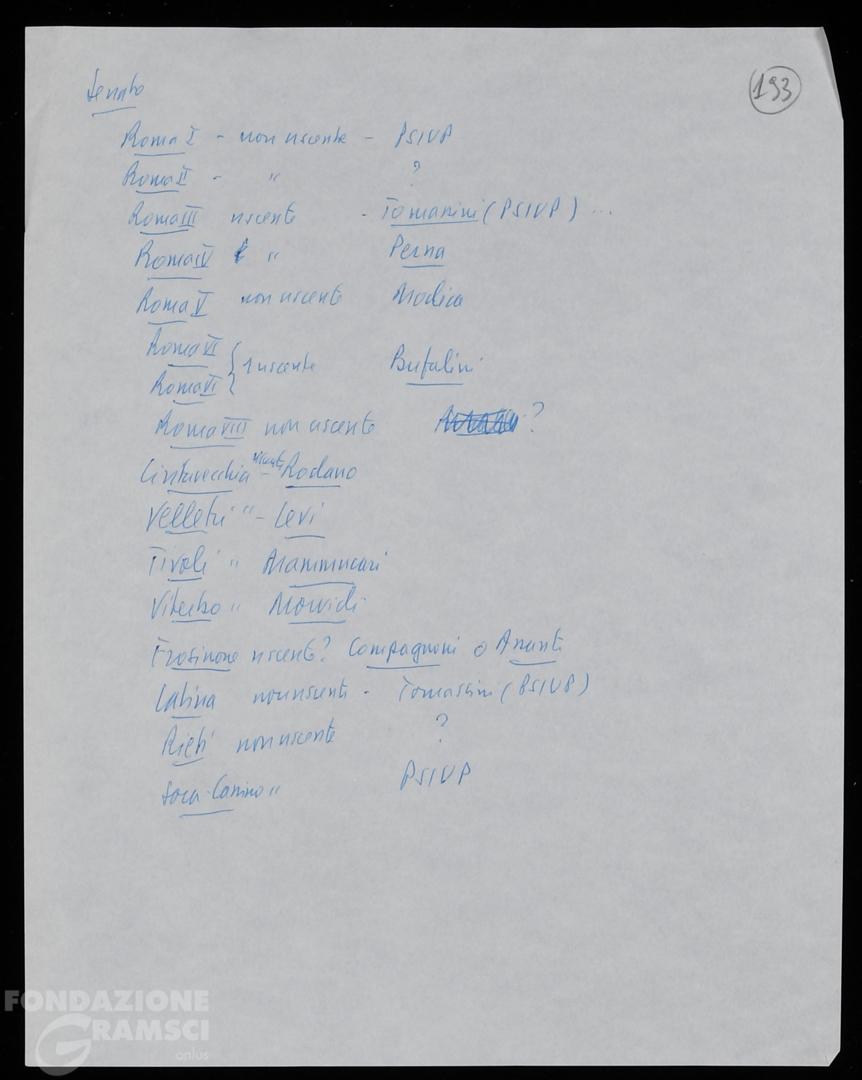 193
Senato
Roma I - non uscente - PSIUP
Roma II - " ?
Roma III uscente - Tomassini (PSIUP) ...
Roma IV " Perna
Roma V non uscente Modica
Roma VI
Roma VI } 1 uscente Bufalini
Roma VIII non uscente ?
Civitavecchia uscente - Rodano
Velletri " - Levi
Tivoli " Mammucari
Viterbo " Morvidi
Frosinone uscente? Compagnoni o
Latina non uscente - Tomassini (PSIUP)
Rieti non uscente ?
Sora-Cassino " PSIUP
FONDAZIONE
GRAMSCI
onlus